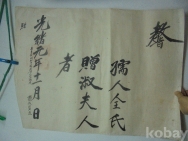 敎旨
孺人全氏
贈淑夫人
者
光緖年十月 日
kobay